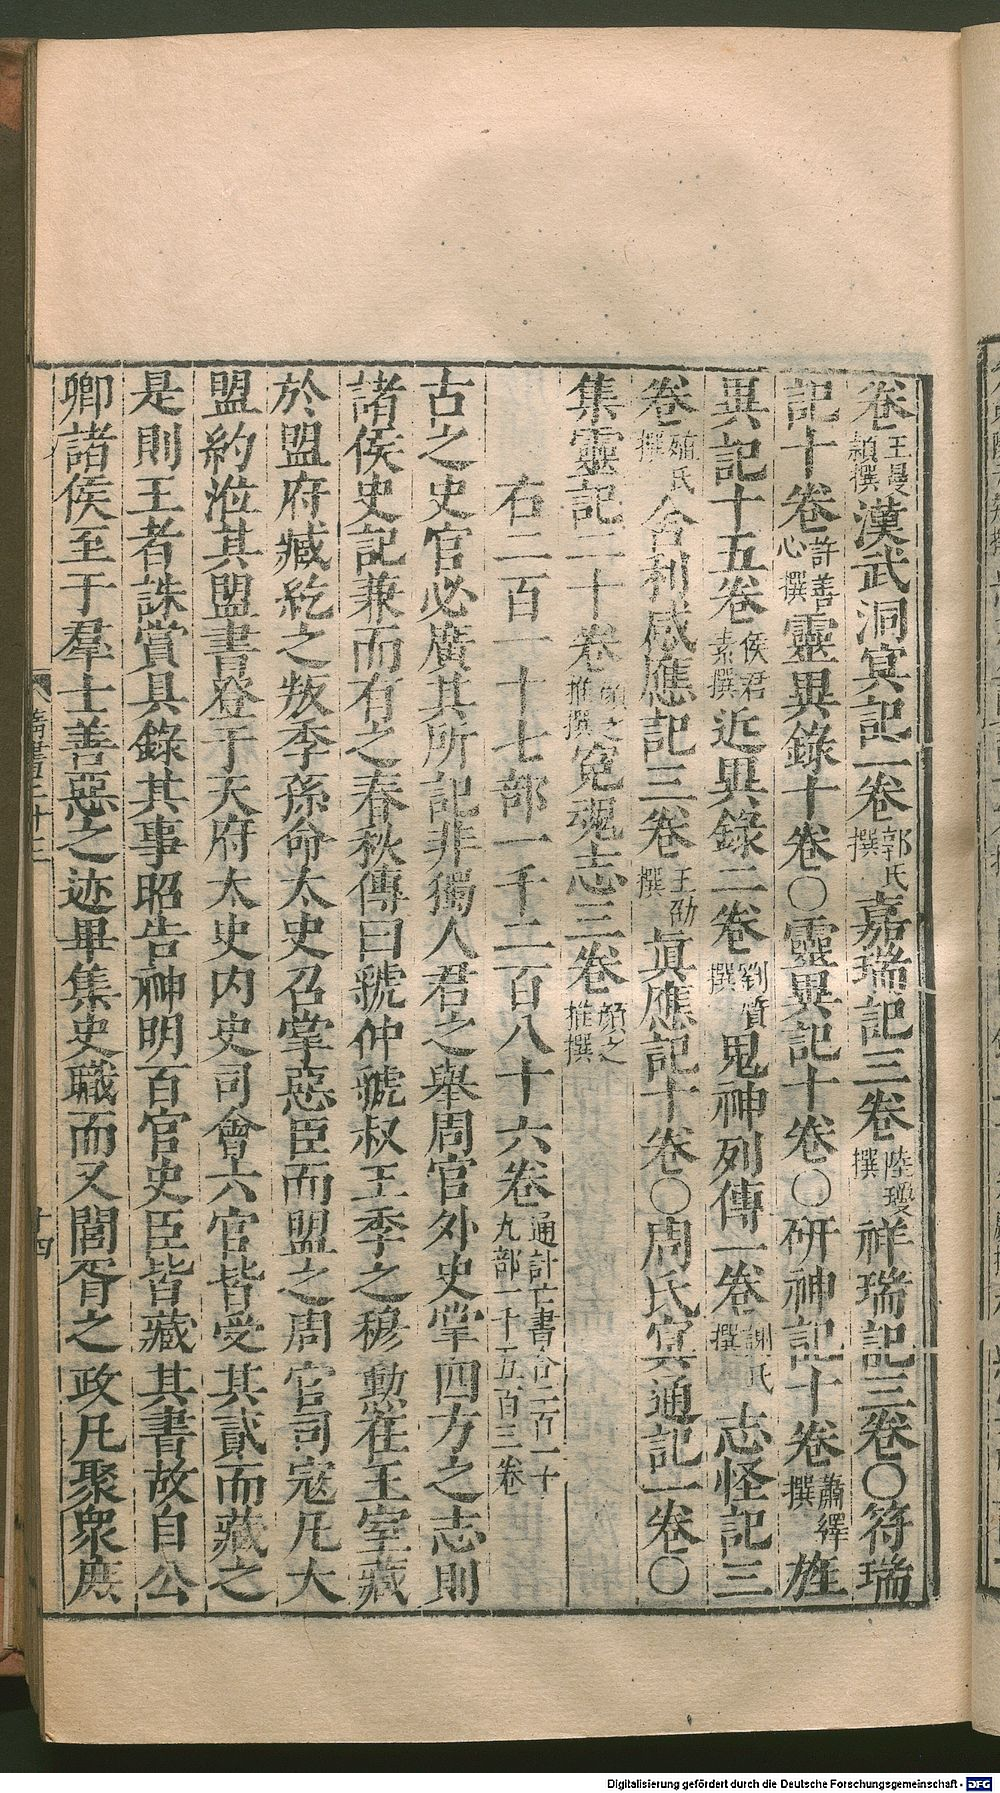 卷王曼頴撰漢武洞冥記一卷郭氏撰嘉瑞記三卷陸瓊撰祥瑞記三卷〇符瑞
記十卷許善心撰靈異錄十卷〇靈異記十卷〇研神記十卷蕭繹撰旌
異記十五卷侯君素撰近異錄二卷劉質撰鬼神列傳一卷謝氏撰志怪記三
卷殖氏撰舍利感應記三卷王劭撰真應記十卷〇周氏冥通記一卷〇
集靈記二十卷顏之推撰冤魂志三卷顏之推撰
右二百一十七部一千二百八十六卷通計亡書合二百一十九部一千五百三卷
古之史官必廣其所記非獨人君之舉周官外史掌四方之志則
諸侯史記兼而有之春秋傳曰虢仲虢叔王季之穆勳在王室藏
於盟府臧紇之叛季孫命太史召掌惡臣而盟之周官司寇凡大
盟約涖其盟書登于天府太史内史司會六官皆受其貳而藏之
是則王者誅賞具錄其事昭告神明百官史臣皆藏其書故自公
卿諸侯至于羣士善惡之迹畢集史職而又閭胥之政凡聚衆庶
十四
Digitalisierung gefördert durch die Deutsche Forschungsgemeinschaft - DFG